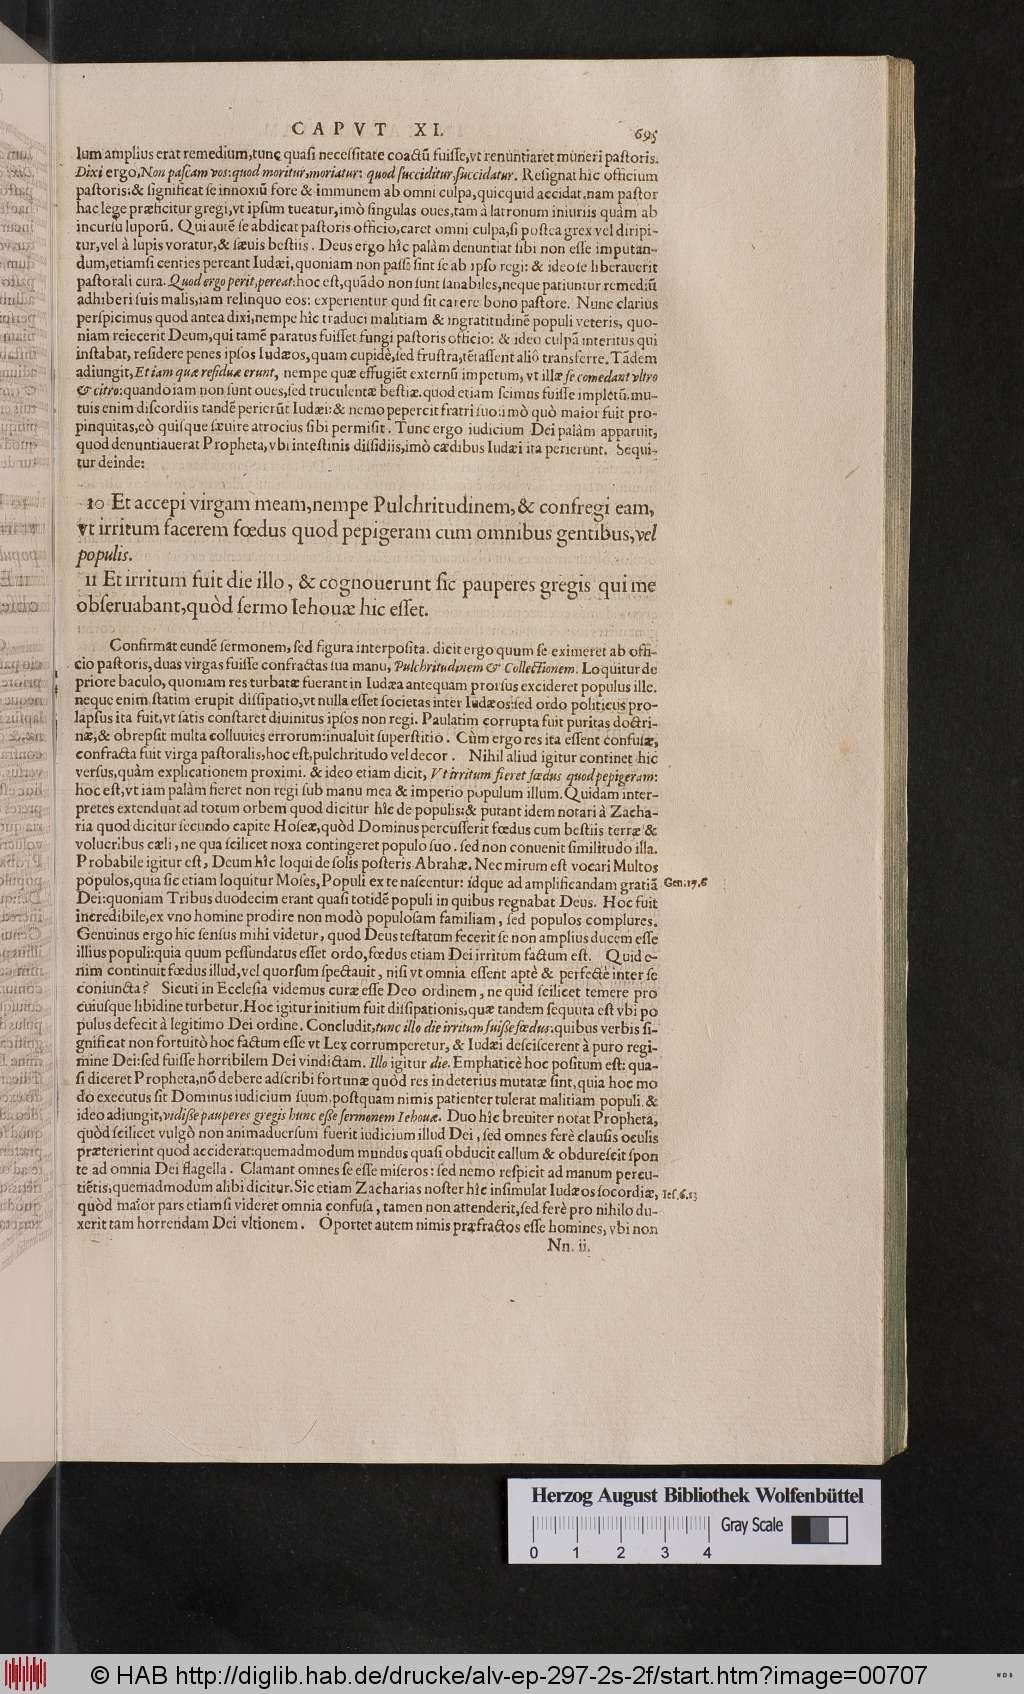 CAPVT XI. 695
lum amplius erat remedium, tunc quasi necessitate coactũ fuisse, vt renuntiaret muneri pastoris.
Dixi ergo, Non pascam vos: quod moritur, moriatur: quod succiditur, succidatur. Resignat hîc officium
pastoris: & significat se innoxiũ fore & immunem ab omni culpa, quicquid accidat. nam pastor
hac lege præficitur gregi, vt ipsum tueatur, imò singulas oues, tam à latronum iniuriis quàm ab
incursu luporũ. Qui autẽ se abdicat pastoris officio, caret omni culpa, si postea grex vel diripi-
tur, vel à lupis voratur, & sæuis bestiis. Deus ergo hîc palàm denuntiat sibi non esse imputan-
dum, etiamsi centies pereant Iudæi, quoniam non passi sint se ab ipso regi: & ideo se liberauerit
pastorali cura. Quod ergo perit, pereat: hoc est, quãdo non sunt sanabiles, neque patiuntur remediũ
adhiberi suis malis, iam relinquo eos: experientur quid sit carere bono pastore. Nunc clarius
perspicimus quod antea dixi, nempe hîc traduci malitiam & ingratitudinẽ populi veteris, quo-
niam reiecerit Deum, qui tamẽ paratus fuisset fungi pastoris officio: & ideo culpã interitus qui
instabat, residere penes ipsos Iudæos, quam cupidè, sed frustra, tẽtassent aliò transferre. Tãdem
adiungit, Et iam quæ residuæ erunt, nempe quæ effugiẽt externũ impetum, vt illæ se comedant vltro
& citro: quando iam non sunt oues, sed truculentæ bestiæ. quod etiam scimus fuisse impletũ. mu-
tuis enim discordiis tandẽ perierũt Iudæi: & nemo pepercit fratri suo: imò quò maior fuit pro-
pinquitas, eò quisque sæuire atrocius sibi permisit. Tunc ergo iudicium Dei palàm apparuit,
quod denuntiauerat Propheta, vbi intestinis dissidiis, imò cædibus Iudæi ita perierunt. Sequi-
tur deinde:
10 Et accepi virgam meam, nempe Pulchritudinem, & confregi eam,
vt irritum facerem fœdus quod pepigeram cum omnibus gentibus, vel
populis.
11 Et irritum fuit die illo, & cognouerunt sic pauperes gregis qui me
obseruabant, quòd sermo Iehouæ hic esset.
Confirmat eundẽ sermonem, sed figura interposita. dicit ergo quum se eximeret ab offi-
cio pastoris, duas virgas fuisse confractas sua manu, Pulchritudinem & Collectionem. Loquitur de
priore baculo, quoniam res turbatæ fuerant in Iudæa antequam prorsus excideret populus ille.
neque enim statim erupit dissipatio, vt nulla esset societas inter Iudæos: sed ordo politicus pro-
lapsus ita fuit, vt satis constaret diuinitus ipsos non regi. Paulatim corrupta fuit puritas doctri-
næ, & obrepsit multa colluuies errorum: inualuit superstitio. Cùm ergo res ita essent confusæ,
confracta fuit virga pastoralis, hoc est, pulchritudo vel decor. Nihil aliud igitur continet hic
versus, quàm explicationem proximi. & ideo etiam dicit, Vt irritum fieret fœdus quod pepigeram:
hoc est, vt iam palàm fieret non regi sub manu mea & imperio populum illum. Quidam inter-
pretes extendunt ad totum orbem quod dicitur hîc de populis: & putant idem notari à Zacha-
ria quod dicitur secundo capite Hoseæ, quòd Dominus percusserit fœdus cum bestiis terræ &
volucribus cæli, ne qua scilicet noxa contingeret populo suo. sed non conuenit similitudo illa.
Probabile igitur est, Deum hîc loqui de solis posteris Abrahæ. Nec mirum est vocari Multos
populos, quia sic etiam loquitur Moses, Populi ex te nascentur: idque ad amplificandam gratiã Gen.17.6
Dei: quoniam Tribus duodecim erant quasi totidẽ populi in quibus regnabat Deus. Hoc fuit
incredibile, ex vno homine prodire non modò populosam familiam, sed populos complures.
Genuinus ergo hic sensus mihi videtur, quod Deus testatum fecerit se non amplius ducem esse
illius populi: quia quum pessundatus esset ordo, fœdus etiam Dei irritum factum est. Quid e-
nim continuit fœdus illud, vel quorsum spectauit, nisi vt omnia essent aptè & perfectè inter se
coniuncta? Sicuti in Ecclesia videmus curæ esse Deo ordinem, ne quid scilicet temere pro
cuiusque libidine turbetur. Hoc igitur initium fuit dissipationis, quæ tandem sequuta est vbi po
pulus defecit à legitimo Dei ordine. Concludit, tunc illo die irritum fuisse fœdus: quibus verbis si-
gnificat non fortuitò hoc factum esse vt Lex corrumperetur, & Iudæi desciscerent à puro regi-
mine Dei: sed fuisse horribilem Dei vindictam. Illo igitur die. Emphaticè hoc positum est: qua-
si diceret Propheta, nõ debere adscribi fortunæ quòd res in deterius mutatæ sint, quia hoc mo
do executus sit Dominus iudicium suum, postquam nimis patienter tulerat malitiam populi. &
ideo adiungit, vidisse pauperes gregis hunc esse sermonem Iehouæ. Duo hîc breuiter notat Propheta,
quòd scilicet vulgò non animaduersum fuerit iudicium illud Dei, sed omnes ferè clausis oculis
præterierint quod acciderat: quemadmodum mundus quasi obducit callum & obdurescit spon
te ad omnia Dei flagella. Clamant omnes se esse miseros: sed nemo respicit ad manum percu-
tiẽtis, quemadmodum alibi dicitur. Sic etiam Zacharias noster hîc insimulat Iudæos socordiæ, Ies.6.13
quòd maior pars etiamsi videret omnia confusa, tamen non attenderit, sed ferè pro nihilo du-
xerit tam horrendam Dei vltionem. Oportet autem nimis præfractos esse homines, vbi non
Nn. ii.
Herzog August Bibliothek Wolfenbüttel
Gray Scale
0 1 2 3 4
© HAB http://diglib.hab.de/drucke/alv-ep-297-2s-2f/start.htm?image=00707